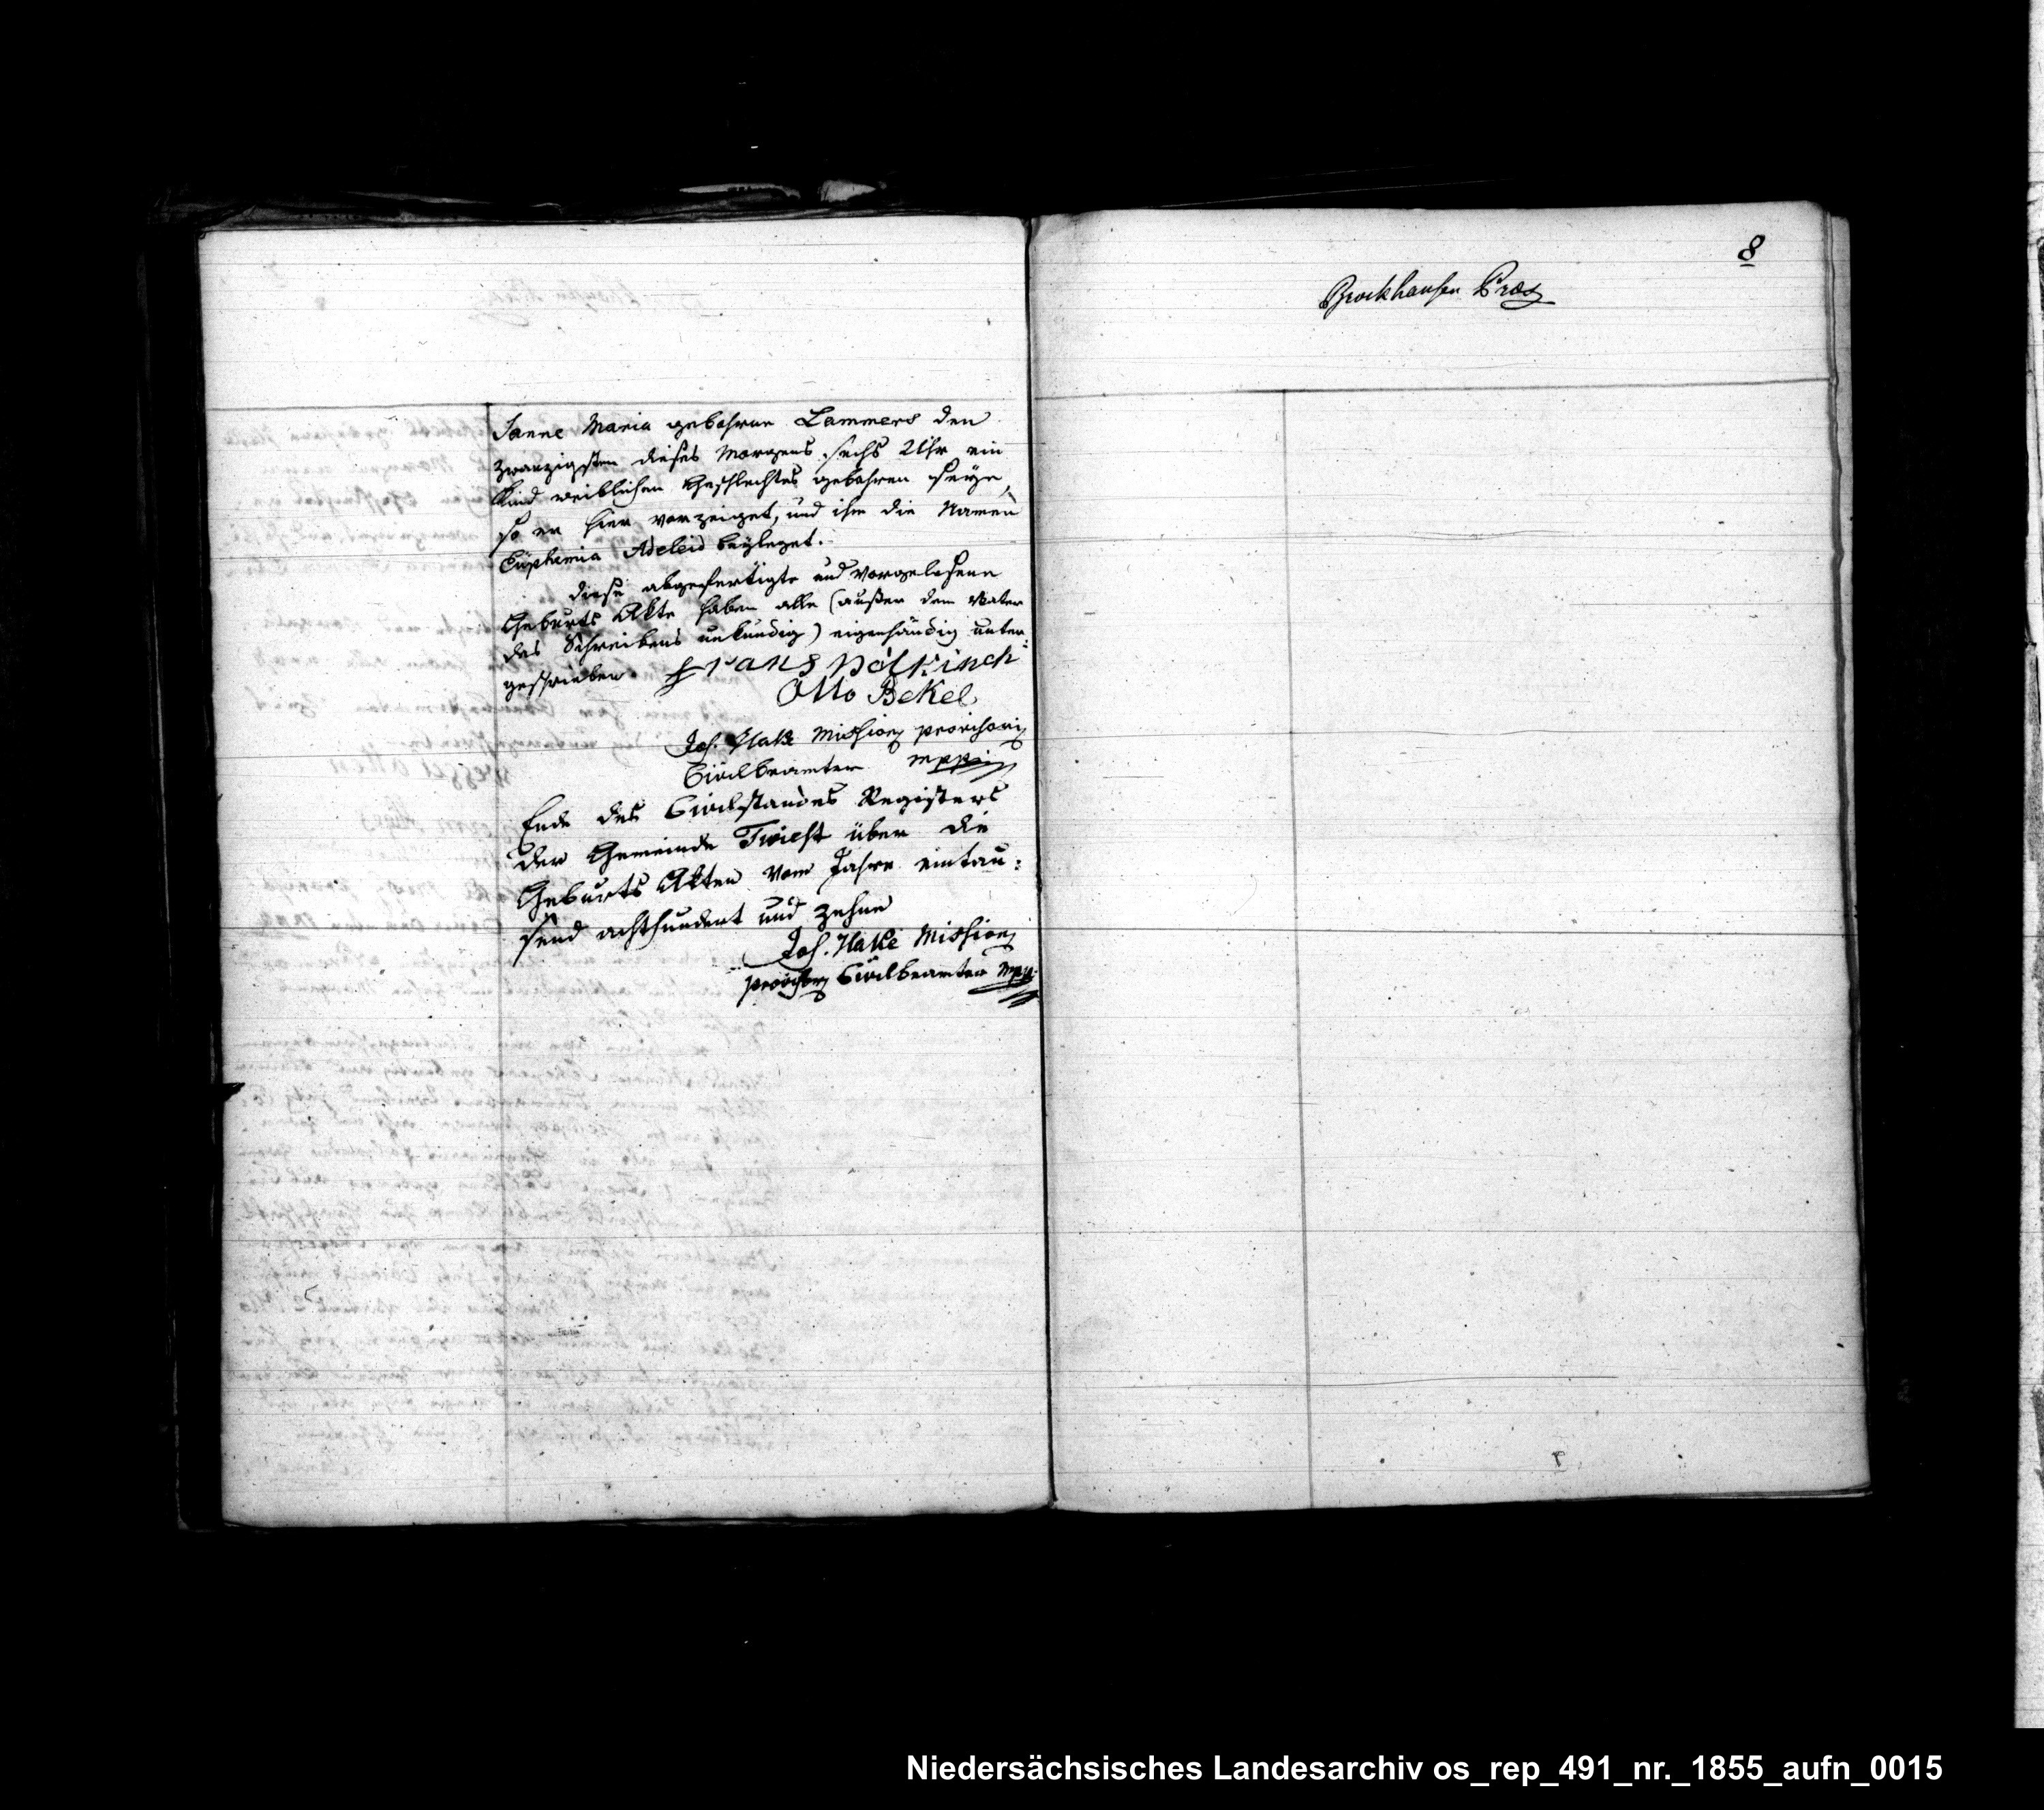 Sanne Maria gebohrne Lammers den
zwanzigsten dieses Morgens sechs Uhr ein
Kind weiblichen Geschlechtes gebohren seye,
so er hier vorzeiget, und ihm die Namen
Euphemia Adeleid beyleget.
diese abgefertigte und vorgelesene
Geburts Akte haben alle (außer dem Vater
des Schreibens unkündig) eigenhändig unter=
geschrieben. Frans
Otto Bekel
Joh. Hake Mission provisori
Civilbeamter mppi
Ende des Civilstandes Registers
der Gemeinde Twiest über die
Geburts Akten vom Jahre eintau=
send achthundert und zehne
Joh. Hake Mission
provisor Civilbeamter mpp
8
Brockhausen Præs
Niedersächsisches Landesarchiv os_rep_491_nr._1855_aufn_0015